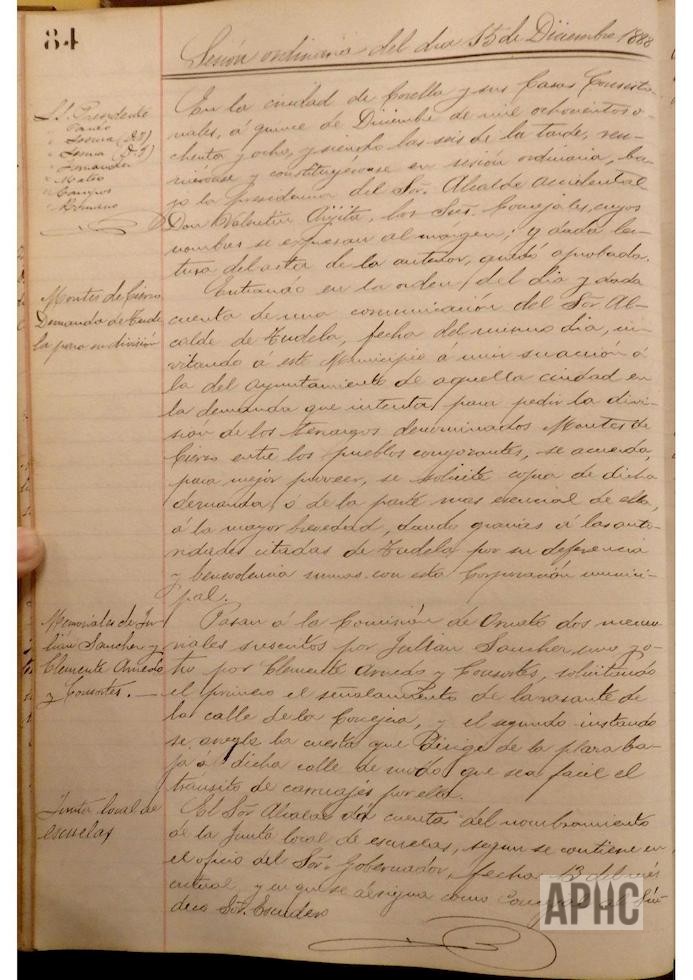 84
Sesión ordinaria del dia 15 de Diciembre 1888
S.S. Presidente
" (D. J)
" (D. J)
" Fernandez
" Mateo
" Campos
En la ciudad de Corella y sus Casas Consisto-
riales, á quince de Diciembre de mil ochocientos o-
chenta y ocho, y siendo las seis de la tarde, reu-
nieronse y constituyéronse en sesión ordinaria, ba-
jo la presidencia del Sor. Alcalde accidental
Don Valentin los Sres. Concejales, cuyos
nombres se expresan al márgen; y dada lec-
tura del acta de la anterior, quedó aprobada.
Montes de Cierzo
Demanda de Tude
la para su división
Entrando en la orden del dia y dada
cuenta de una comunicación del Sor Al-
calde de Tudela, fecha del mismo dia, in-
vitando á este Municipio á unir su acción á
la del Ayuntamiento de aquella ciudad en
la demanda que intenta para pedir la divi-
sión de los terrenos denominados Montes de
Cierzo entre los pueblos congozantes, se acuerda,
para mejor proveer, se solicite copia de dicha
demanda, ó de la parte mas esencial de ella,
á la mayor brevedad, dando gracias á las auto-
ridades citadas de Tudela por su deferencia
y benevolencia sumas con esta Corporación munici-
pal.
Memoriales de Ju-
lián Sanchez y
Clemente Arnedo
y Consortes.
Pasan á la Comisión de Ornato dos memo-
riales suscritos por Julian Sanchez, uno y o-
tro por Clemente Arnedo y Consortes, solicitando
el primero el señalamiento de la rasante de
la calle de la Conejera, y el segundo instando
se arregle la cuesta que dirige de la plaza ba-
ja á dicha calle de modo que sea facil el
tránsito de carruajes por ella.
Junta local de
escuelas
El Sor Alcalde da cuenta del nombramiento
de la Junta local de escuelas, segun se contiene en
el oficio del Sor. Gobernador, fecha 13 del mes
actual, y en que se designa como Concejal al Sín-
dico Sor. Escudero
APHC